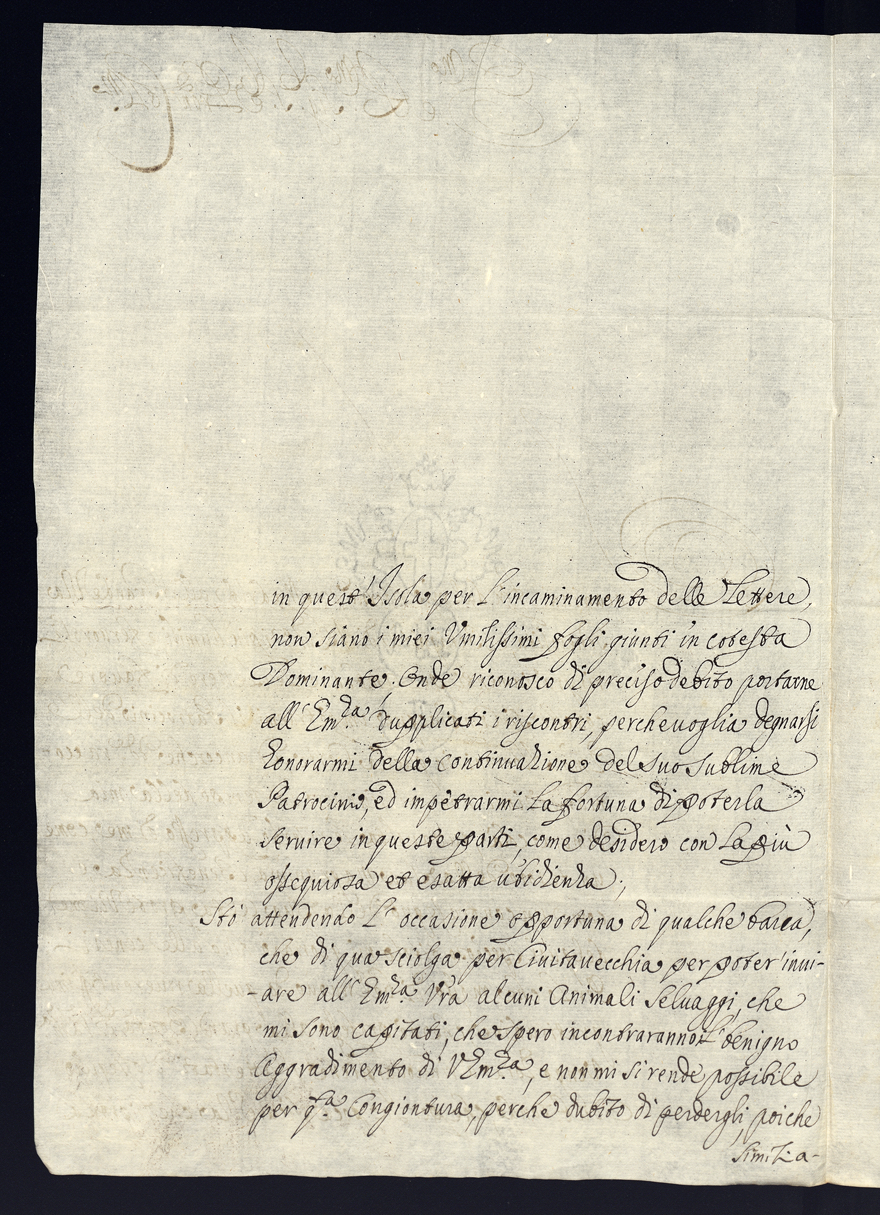 in quest' Isola per l' incaminamento delle Lettere,
non siano i miei Vmilissimi fogli giunti in cotesta
Dominante. Onde riconosco di preciso debito portarne
all' Em.za duplicati i riscontri, perche uoglia degnarsi
honorarmi della continuazione del suo sublime
Patrocinio, ed impetrarmi la fortuna di poterla
seruire in queste parti, come desidero con la più
ossequiosa et esatta ubidienza;
Stò attendendo l' occasione opportuna di qualche barca,
che di qua sciolga per Ciuitauecchia per poter' inui-
-are all' Em.za Vra alcuni Animali Seluaggi, che
mi sono capitati, che spero incontraranno il benigno
Aggradimento di V Em.za, e non mi si rende possibile
per q.ta Congiontura, perche dubito di perdergli, poiche
simili a-